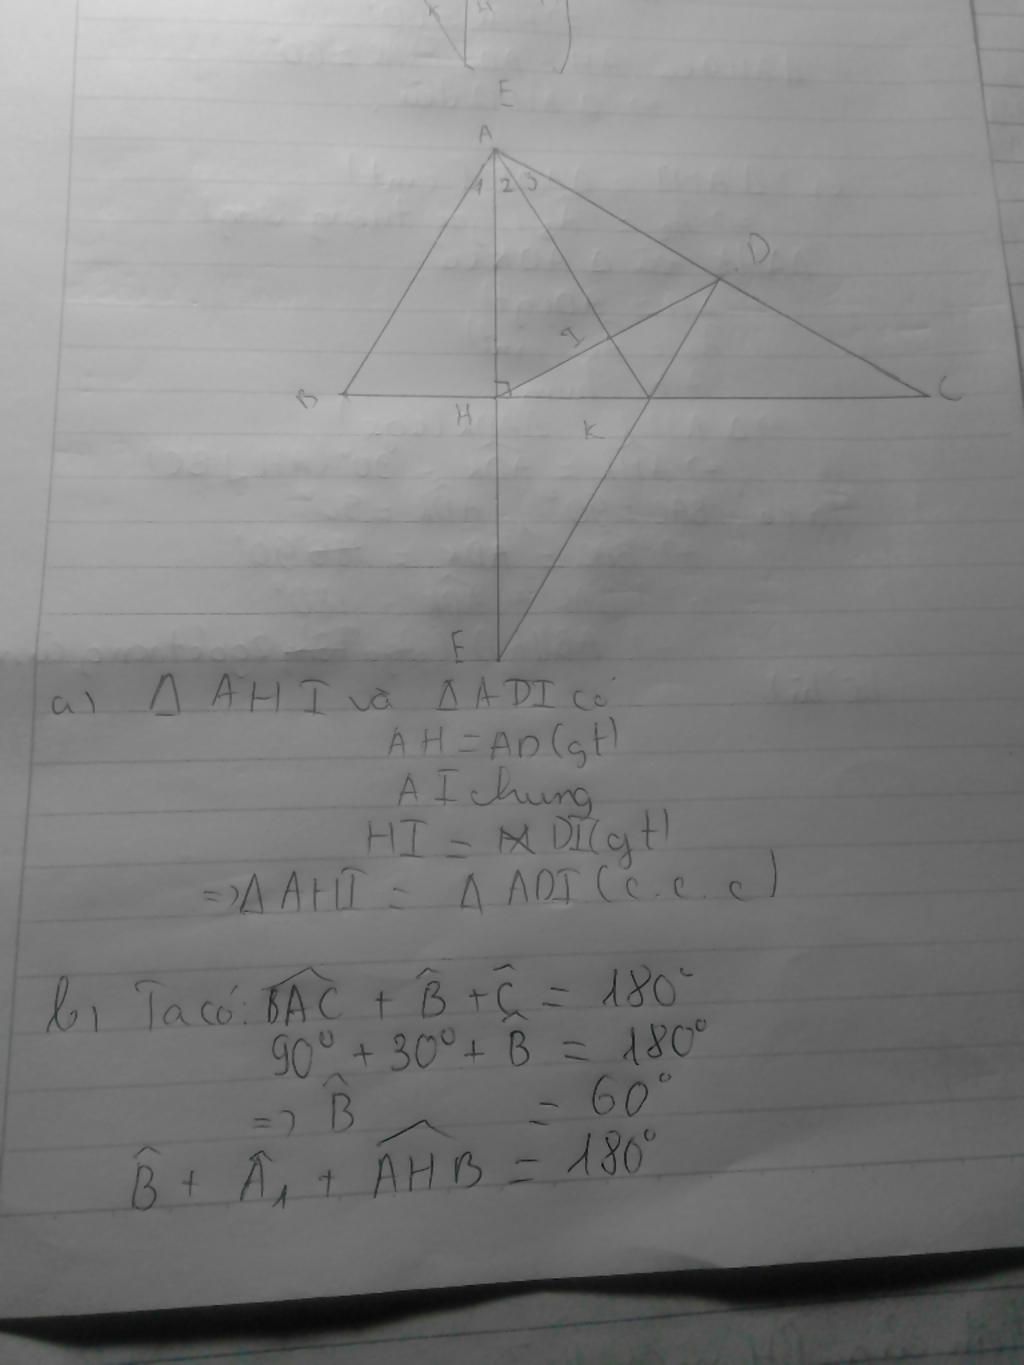 E
A
1 2 3
D
I
B
H
K
C
E
a) Δ AHI và Δ ADI có
AH = AD (gt)
AI chung
HI = DI (gt)
=> Δ AHI = Δ ADI (c.c.c)
b) Ta có: BAC + B̂ + Ĉ = 180°
90° + 30° + B̂ = 180°
=> B̂ = 60°
B̂ + Â₁ + AHB = 180°